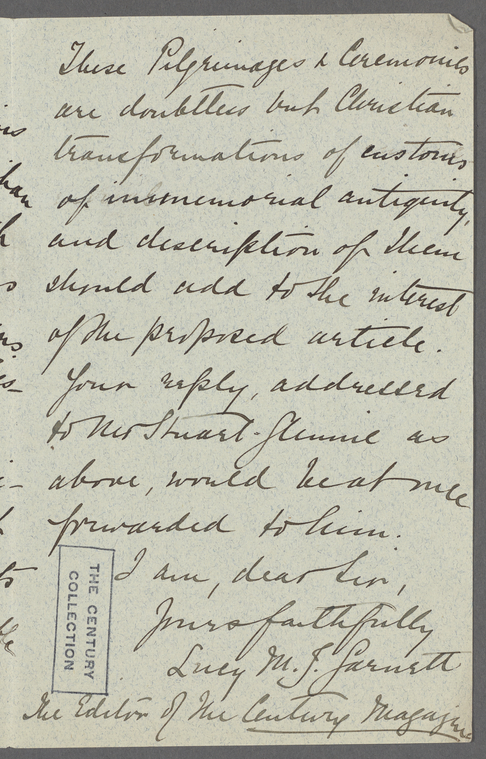 These Pilgrimages & Ceremonies
are doubtless but Christian
transformations of customs
of immemorial antiquity,
and description of them
should add to the interest
of the proposed article.
Your reply, addressed
to Mr Stuart-Glennie as
above, would be at once
forwarded to him.
I am, dear Sir,
Yours faithfully
Lucy M. J. Garnett
The Editor of the Century Magazine
THE CENTURY
COLLECTION